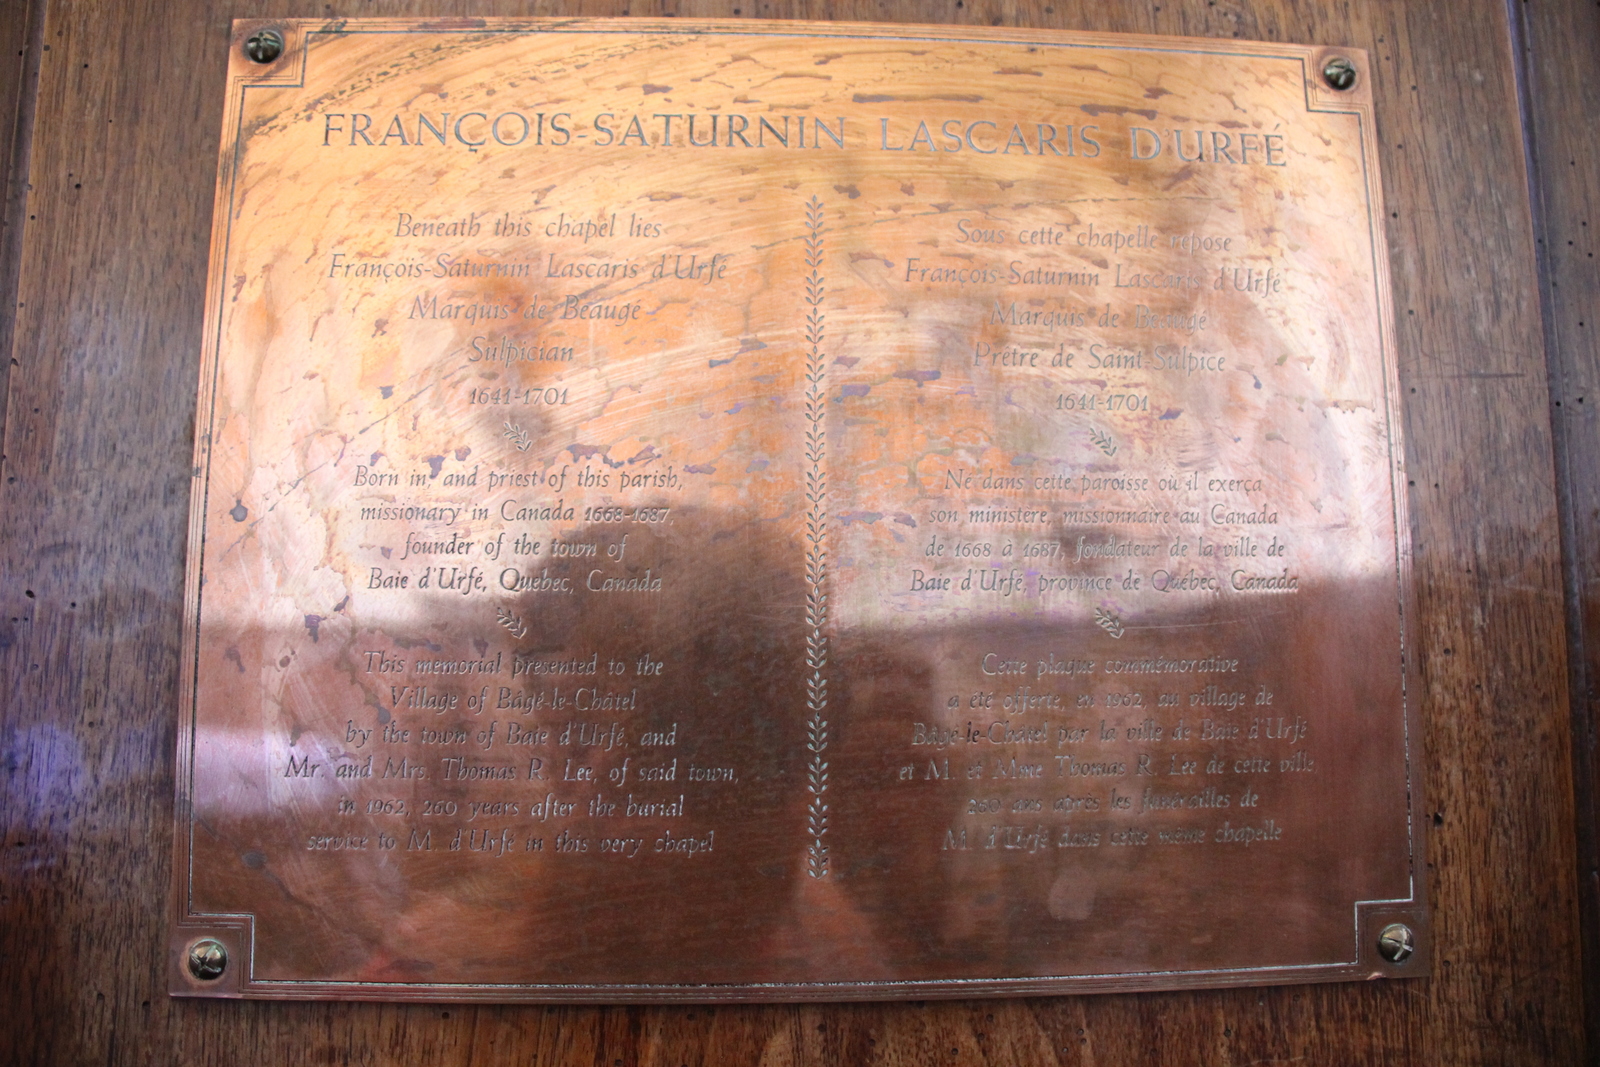 FRANÇOIS-SATURNIN LASCARIS D'URFÉ
Beneath this chapel lies
François-Saturnin Lascaris d'Urfé
Marquis de Beaugé
Sulpician
1641-1701
Born in, and priest of this parish,
missionary in Canada 1668-1687,
founder of the town of
Baie d'Urfé, Quebec, Canada
This memorial presented to the
Village of Bâgé-le-Châtel
by the town of Baie d'Urfé, and
Mr. and Mrs. Thomas R. Lee, of said town,
in 1962, 260 years after the burial
service to M. d'Urfé in this very chapel
Sous cette chapelle repose
François-Saturnin Lascaris d'Urfé
Marquis de Beaugé
Prêtre de Saint-Sulpice
1641-1701
Né dans cette paroisse où il exerça
son ministère, missionnaire au Canada
de 1668 à 1687, fondateur de la ville de
Baie d'Urfé, province de Québec, Canada
Cette plaque commémorative
a été offerte, en 1962, au village de
Bâgé-le-Châtel par la ville de Baie d'Urfé
et M. et Mme Thomas R. Lee de cette ville
260 ans après les funérailles de
M. d'Urfé dans cette même chapelle